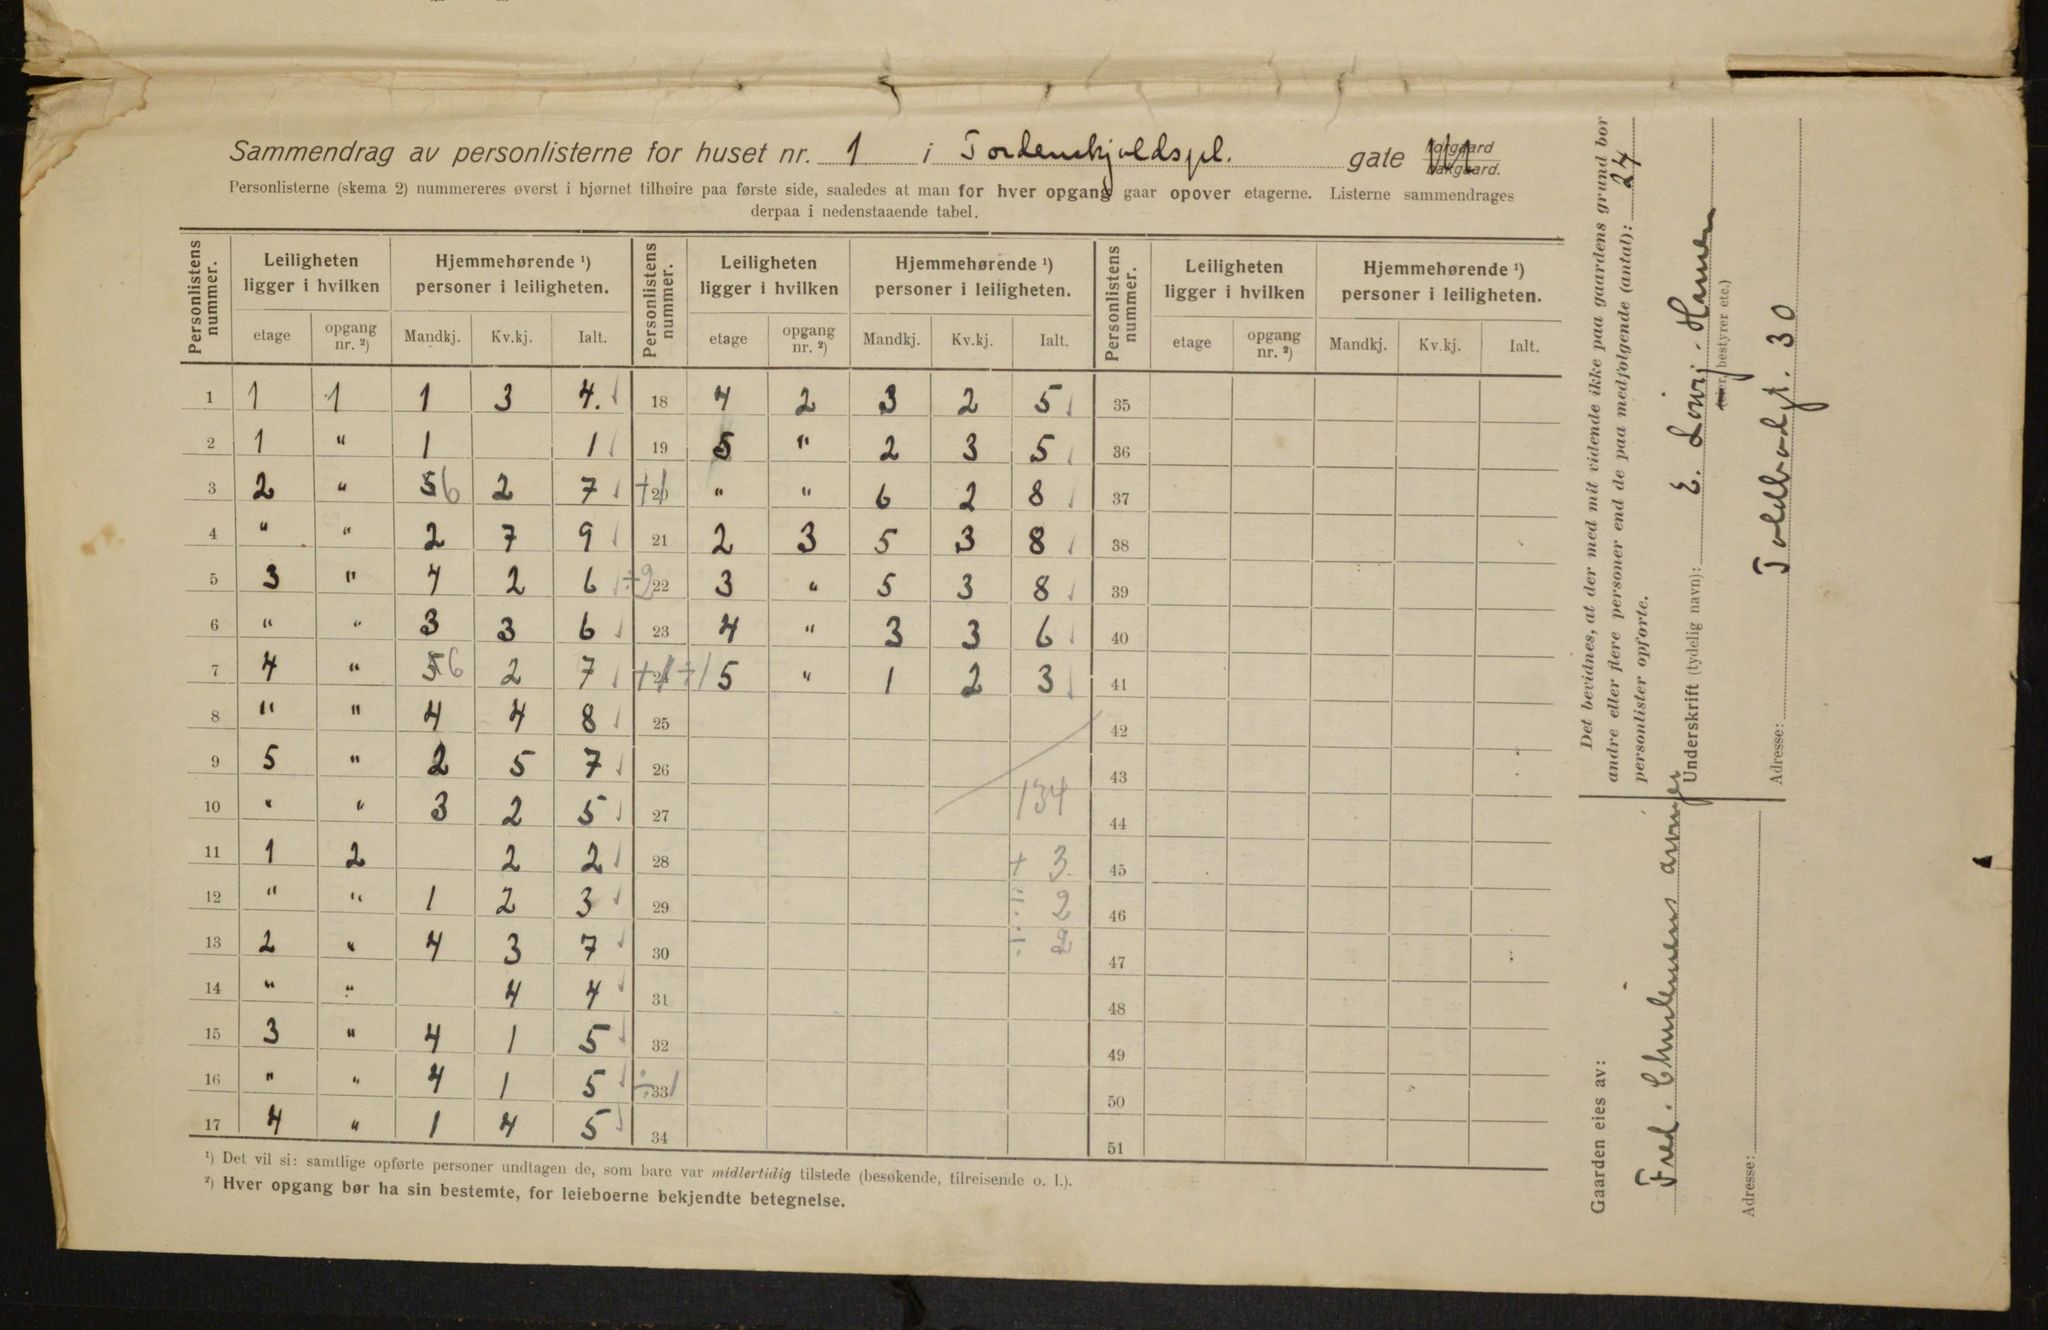 Sammendrag av personlisterne for huset nr. 1 i Tordenskjoldspl. gate Forgaard Bakgaard.
Personlisterne (skema 2) nummereres øverst i bjørnet tilhøire paa første side, saaledes at man for hver opgang gaar opover etagerne. Listerne sammendrages
derpaa i nedenstaaende tabel.
Personlistens nummer. Leiligheten ligger i hvilken Hjemmehørende ¹) personer i leiligheten. Personlistens nummer. Leiligheten ligger i hvilken Hjemmehørende ¹) personer i leiligheten. Personlistens nummer. Leiligheten ligger i hvilken Hjemmehørende ¹) personer i leiligheten.
etage opgang nr. ²) Mandkj. Kv.kj. Ialt. etage opgang nr. ²) Mandkj. Kv.kj. Ialt. etage opgang nr. ²) Mandkj. Kv.kj. Ialt.
1 1 1 1 3 4. 18 4 2 3 2 5 35
2 1 " 1 1 19 5 " 2 3 5 36
3 2 " 5 6 2 7 +1 20 " " 6 2 8 37
4 " " 2 7 9 21 2 3 5 3 8 38
5 3 " 4 2 6 ÷2 22 3 " 5 3 8 39
6 " " 3 3 6 23 4 " 3 3 6 40
7 4 " 5 6 2 7 +1 24 ÷1 5 " 1 2 3 41
8 " " 4 4 8 25 42
9 5 " 2 5 7 26 43
10 " " 3 2 5 27 134 44
11 1 2 2 2 28 + 3 45
12 " " 1 2 3 29 ÷ 2 46
13 2 " 4 3 7 30 ÷ 2 47
14 " " 4 4 31 48
15 3 " 4 1 5 32 49
16 " " 4 1 5 ÷1 33 50
17 4 " 1 4 5 34 51
¹) Det vil si: samtlige opførte personer undtagen de, som bare var midlertidig tilstede (besøkende, tilreisende o. l.).
²) Hver opgang bør ha sin bestemte, for leieboerne bekjendte betegnelse.
Det bevidnes, at der med mit vidende ikke paa gaardens grund bor
andre eller flere personer end de paa medfølgende (antal): 24
personlister opførte.
Underskrift (tydelig navn): E. Hansen
(eier, bestyrer etc.)
Adresse: Toldbodgt. 30
Gaarden eies av:
Fred. arvinger
Adresse: